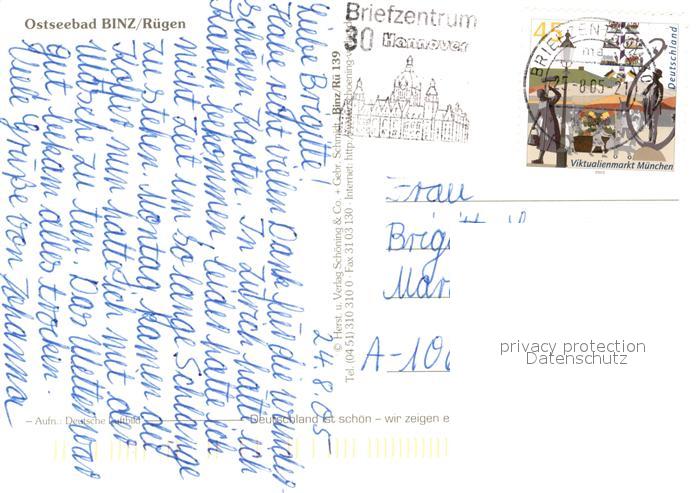 Ostseebad BINZ/Rügen
Liebe Brigitte!
Habe recht vielen Dank für die wunder-
schönen Karten. In Zürich hatte ich
Karten bekommen, leider hatte ich
nicht Zeit um so lange Schlange
zu stehen. Montag kamen die
Koffer nun hatte ich mit der
Wäsche zu tun. Das Wetter war
gut bekam alles trocken.
Viele Grüße von Johanna
24.8.05
© Herst. u. Verlag Schöning & Co. + Gebr. Schmidt, Binz/Rü 139
Tel. (04 51) 310 310 0 · Fax 31 03 130 · Internet: http://
– Aufn.: Deutsche Luftbild
Deutschland ist schön – wir zeigen e
Briefzentrum
30 Hannover
45
Deutschland
BRIEFZENTR
-8.05-21
Viktualienmarkt München
Frau
Brigitt
Mar
A-10
privacy protection
Datenschutz